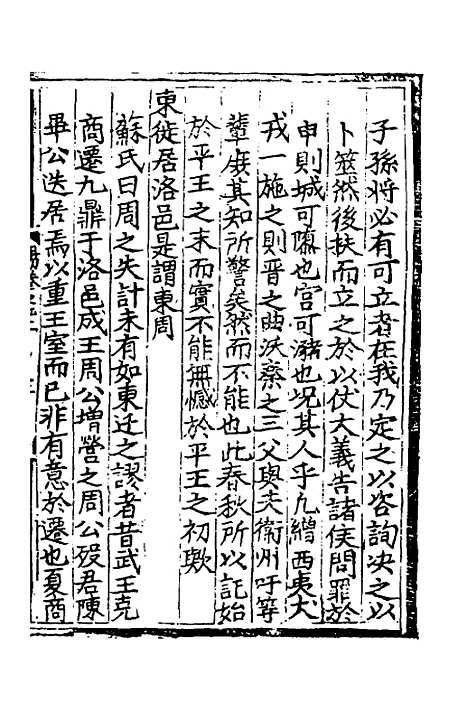 子孫将必有可立者在我乃定之以咨詢决之以
卜筮然後扶而立之於以仗大義告諸侯問罪於
申則城可隳也宫可瀦也况其人乎凡繒西夷犬
戎一施之則晋之曲沃蔡之三父與夫衛州吁等
輩庶其知所警矣然而不能也此春秋所以託始
於平王之末而實不能無憾於平王之初歟
東徙居洛邑是謂東周
蘇氏曰周之失計未有如東迁之謬者昔武王克
商遷九鼎于洛邑成王周公増營之周公殁君陳
畢公迭居焉以重王室而已非有意於遷也夏商